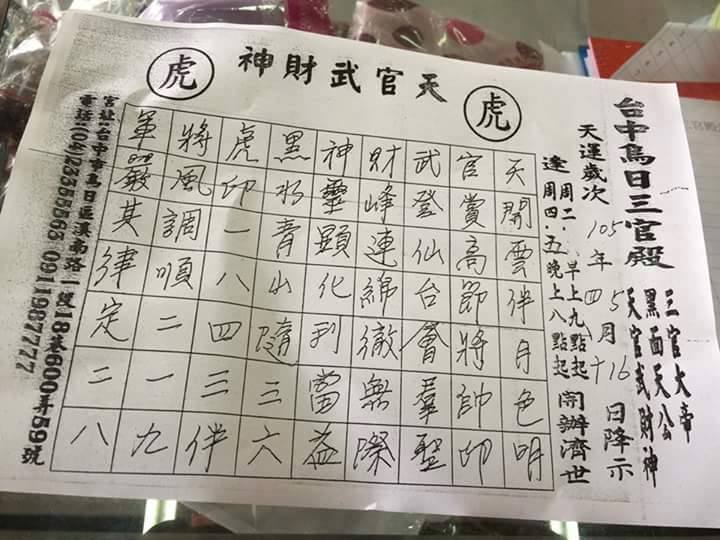 天官武財神
虎
虎
台中烏日三官殿
三官大帝
黑面天公
天官武財神
天運歲次 105年四5月十16日降示
逢周二.早上九點起
周四.五晚上八點起
開辦濟世
天開雲伴月色明
官賞高節將帥印
武登仙台會羣聖
財峰連綿徹無際
神靈顯化利當益
黑水青山隨三六
虎印一八四三伴
將風調順二一九
軍嚴其律定二八
宮址:台中市烏日區溪南路一段18巷600弄59號
電話:(04)23355563 0911987777